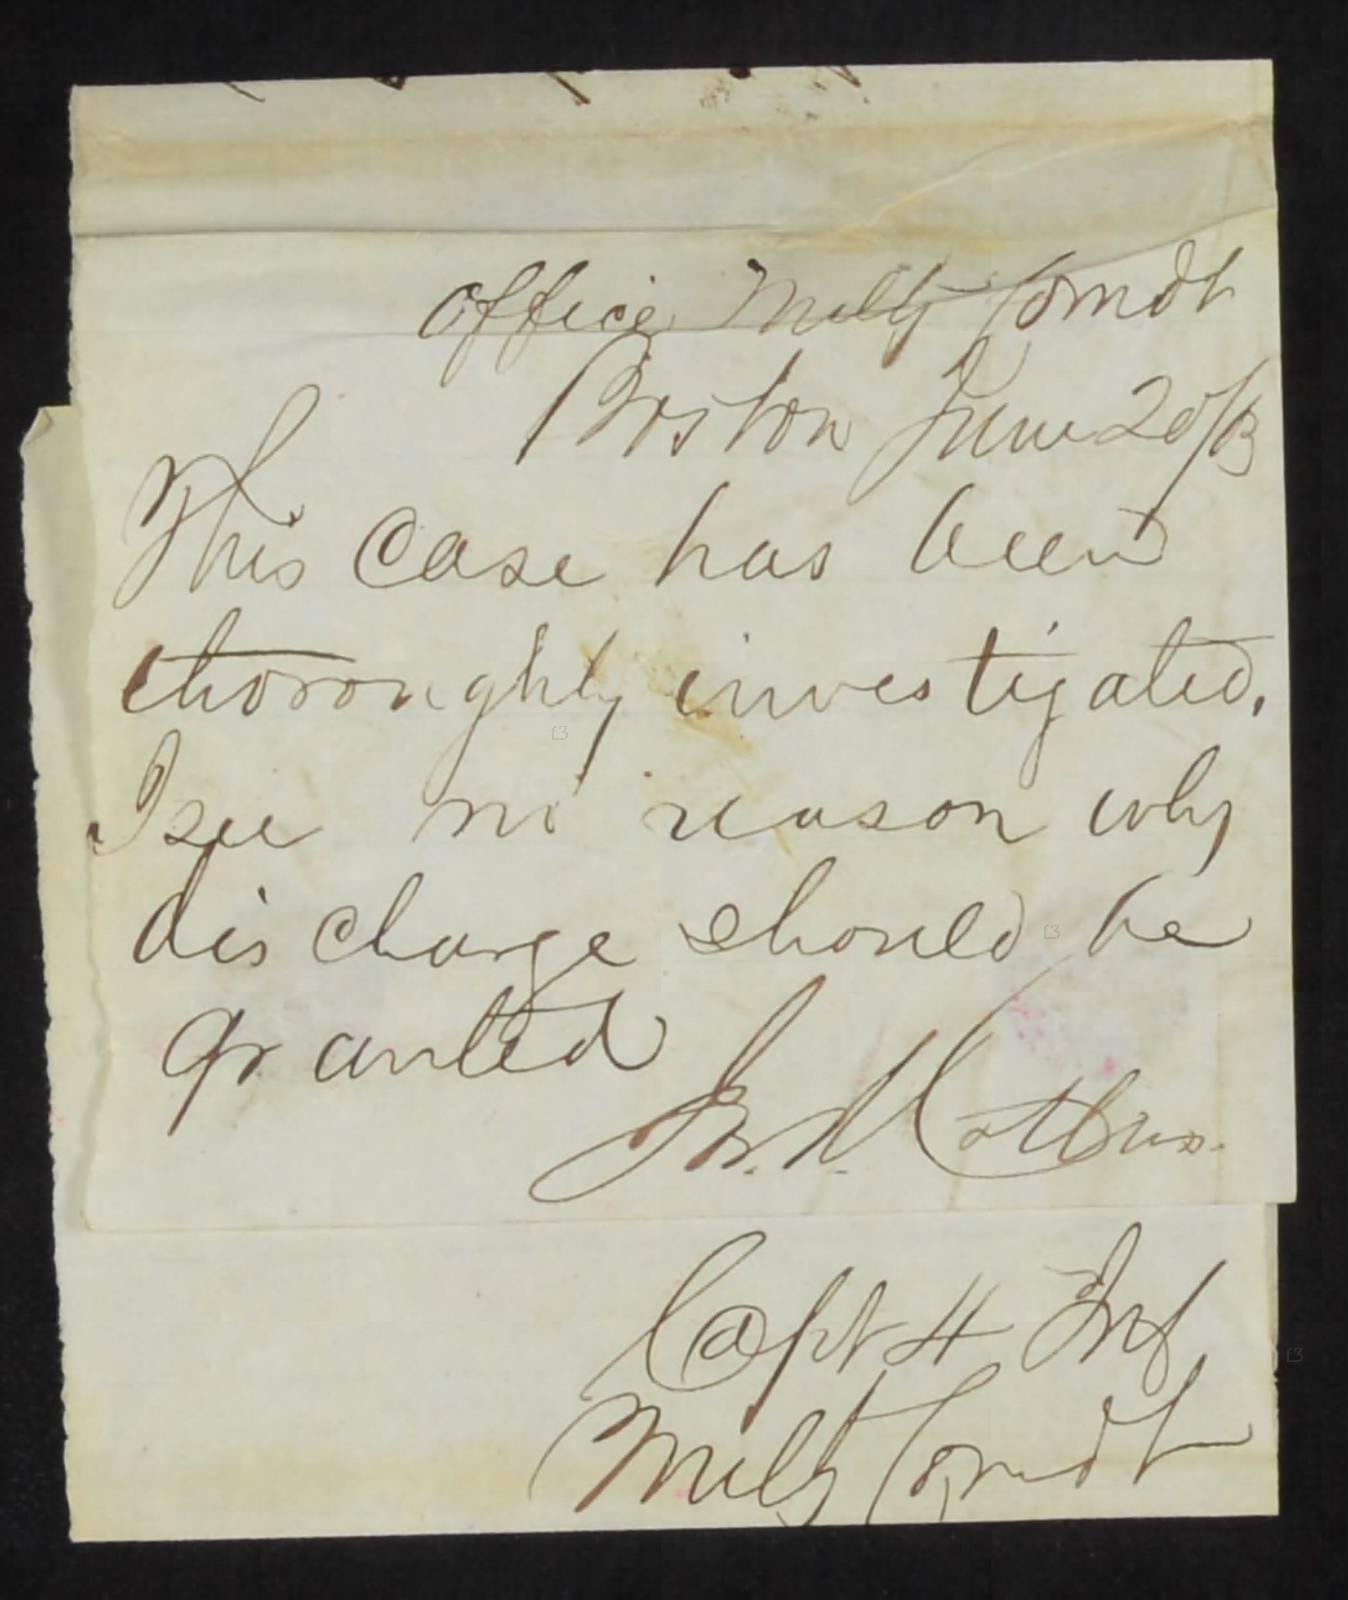 Office Milty Comdt
Boston June 20/63
This Case has been
thoroughly investigated.
I see no reason why
discharge should be
granted
Capt 4 Inf
Milty Comdt